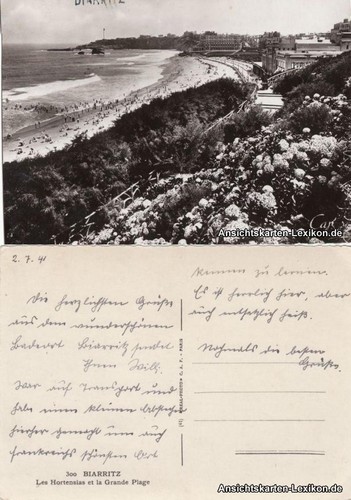 BIARRITZ
Cap
Ansichtskarten-Lexikon.de
2. 7. 41
Die herzlichsten Grüße
aus dem wunderschönen
Badeort Biarritz sendet
Ihnen Willi.
War auf Transport und
habe einen kleinen Abstecher
hierher gemacht um auch
Frankreichs schönsten Ort
kennen zu lernen.
Es ist herrlich hier, aber
auch entsetzlich heiß.
Nochmals die besten
Grüße.
300 BIARRITZ
Les Hortensias et la Grande Plage
Ansichtskarten-Lexikon.de